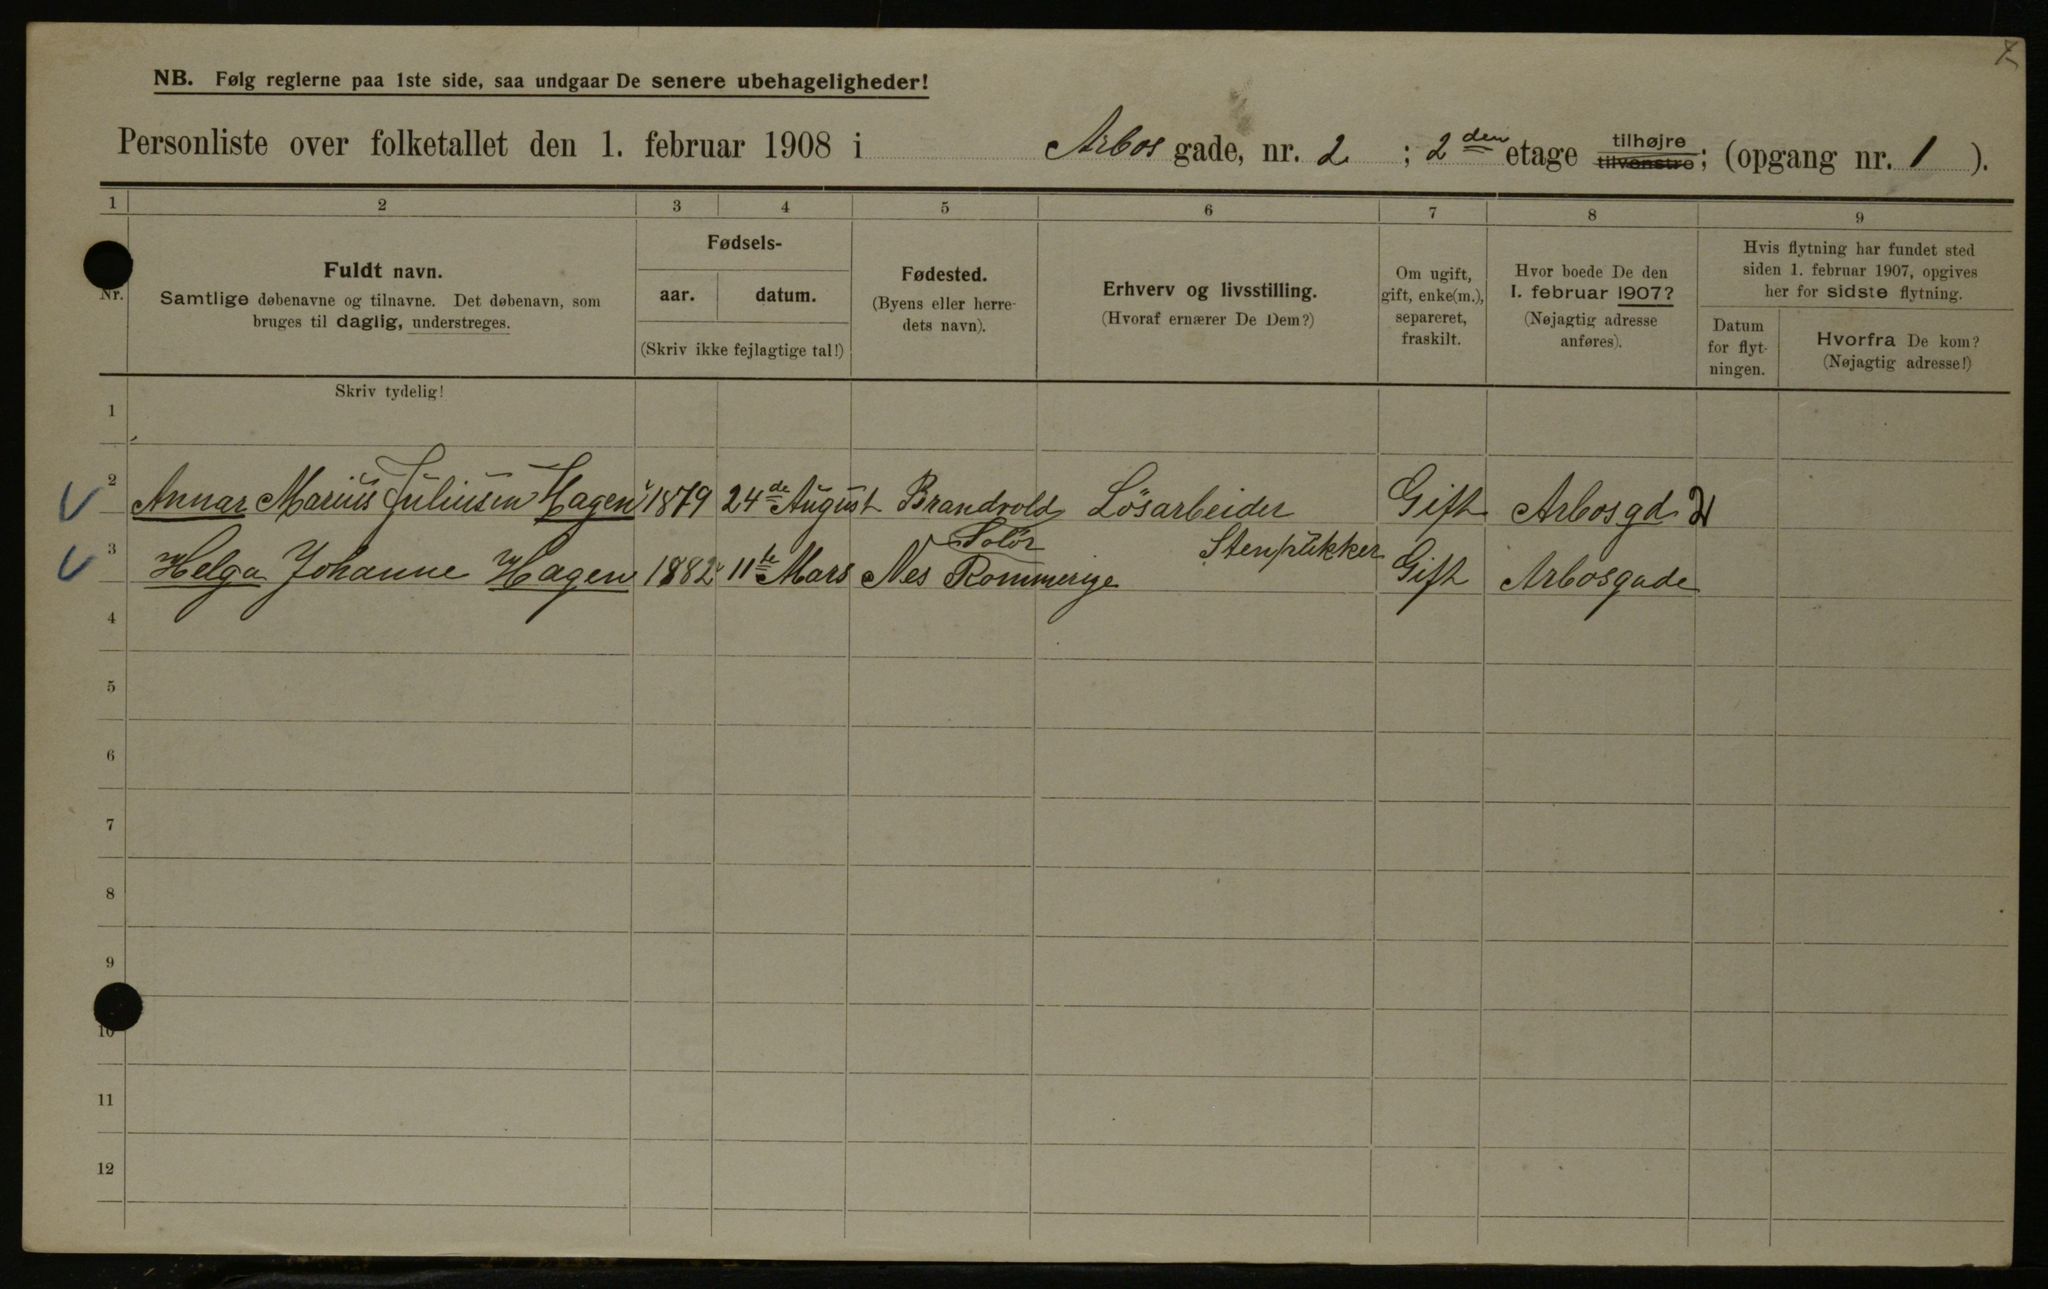 7
NB. Følg reglerne paa 1ste side, saa undgaar De senere ubehageligheder!
Personliste over folketallet den 1. februar 1908 i Arbos gade, nr. 2 ; 2den etage tilhøjre tilvenstre; (opgang nr. 1 ).
1 2 3 4 5 6 7 8 9
Nr.
Fuldt navn.
Samtlige døbenavne og tilnavne. Det døbenavn, som
bruges til daglig, understreges.
Fødsels-
aar. datum.
(Skriv ikke fejlagtige tal!)
Fødested.
(Byens eller herre-
dets navn).
Erhverv og livsstilling.
(Hvoraf ernærer De Dem?)
Om ugift,
gift, enke(m.),
separeret,
fraskilt.
Hvor boede De den
1. februar 1907?
(Nøjagtig adresse
anføres).
Hvis flytning har fundet sted
siden 1. februar 1907, opgives
her for sidste flytning.
Datum
for flyt-
ningen.
Hvorfra De kom?
(Nøjagtig adresse!)
Skriv tydelig!
1
2 Annar Marius Juliusen Hagen 1879 24de August Brandvold Lösarbeider Gift Arbosgd 2
Solör Stenpukker
3 Helga Johanne Hagen 1882 11te Mars Nes Rommerige Gift Arbosgade
4
5
6
7
8
9
10
11
12